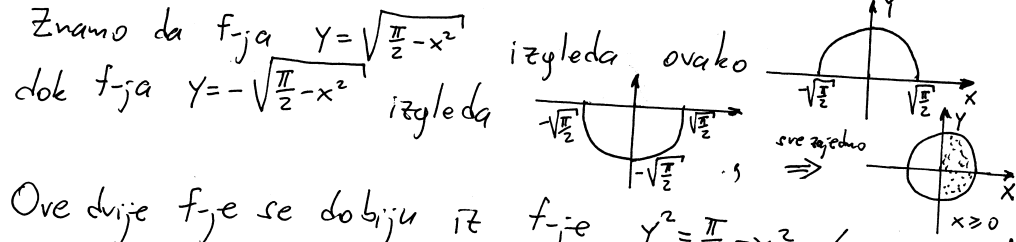 Znamo da f-ja y = √(π/2 - x²) izgleda ovako
y
-√(π/2) √(π/2) x
dok f-ja y = -√(π/2 - x²) izgleda
-√(π/2) √(π/2)
-√(π/2)
,
sve zajedno
⇒
y
x
x ≥ 0
Ove dvije f-je se dobiju iz f-je y² = π/2 - x²